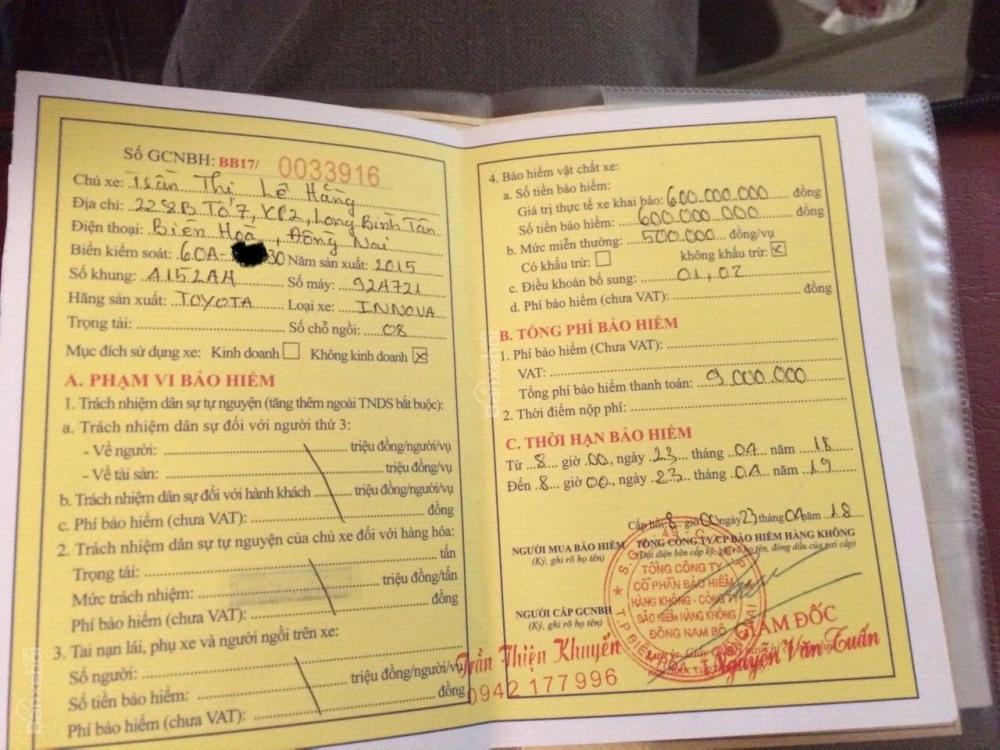 Số GCNBH: BB17/ 0033916
Chủ xe: Trần Thị Lệ Hằng
Địa chỉ: 228B Tổ 7, KP2, Long Bình Tân
Điện thoại: Biên Hoà, Đồng Nai
Biển kiểm soát: 60A- 30 Năm sản xuất: 2015
Số khung: 4152AH Số máy: 92A721
Hãng sản xuất: TOYOTA Loại xe: INNOVA
Trọng tải: Số chỗ ngồi: 08
Mục đích sử dụng xe: Kinh doanh Không kinh doanh
A. PHẠM VI BẢO HIỂM
1. Trách nhiệm dân sự tự nguyện (tăng thêm ngoài TNDS bắt buộc):
a. Trách nhiệm dân sự đối với người thứ 3:
- Về người: triệu đồng/người/vụ
- Về tài sản: triệu đồng/vụ
b. Trách nhiệm dân sự đối với hành khách triệu đồng/người/vụ
c. Phí bảo hiểm (chưa VAT): đồng
2. Trách nhiệm dân sự tự nguyện của chủ xe đối với hàng hóa:
Trọng tải: tấn
Mức trách nhiệm: triệu đồng/tấn
Phí bảo hiểm (chưa VAT): đồng
3. Tai nạn lái, phụ xe và người ngồi trên xe:
Số người: triệu đồng/người/vụ
Số tiền bảo hiểm: đồng
Phí bảo hiểm (chưa VAT):
4. Bảo hiểm vật chất xe:
a. Số tiền bảo hiểm:
Giá trị thực tế xe khai báo: 600.000.000 đồng
Số tiền bảo hiểm: 600.000.000 đồng
b. Mức miễn thường: 500.000 đồng/vụ
Có khấu trừ: không khấu trừ:
c. Điều khoản bổ sung: 01, 02
d. Phí bảo hiểm (chưa VAT): đồng
B. TỔNG PHÍ BẢO HIỂM
1. Phí bảo hiểm (Chưa VAT):
VAT:
Tổng phí bảo hiểm thanh toán: 9.000.000
2. Thời điểm nộp phí:
C. THỜI HẠN BẢO HIỂM
Từ 8 giờ 00, ngày 23 tháng 04 năm 18
Đến 8 giờ 00, ngày 23 tháng 04 năm 19
Cấp hồi: 8 giờ 00 ngày 23 tháng 04 năm 18
NGƯỜI MUA BẢO HIỂM TỔNG CÔNG TY CP BẢO HIỂM HÀNG KHÔNG
(Ký, ghi rõ họ tên) (Đại diện bên cấp ký, ghi rõ họ tên, đóng dấu của nơi cấp)
TỔNG CÔNG TY
CỔ PHẦN BẢO HIỂM
HÀNG KHÔNG - CÔNG TY
BẢO HIỂM HÀNG KHÔNG
ĐÔNG NAM BỘ
NGƯỜI CẤP GCNBH
(Ký, ghi rõ họ tên)
GIÁM ĐỐC
Trần Thiện Khuyến Nguyễn Văn Tuấn
0942 177996